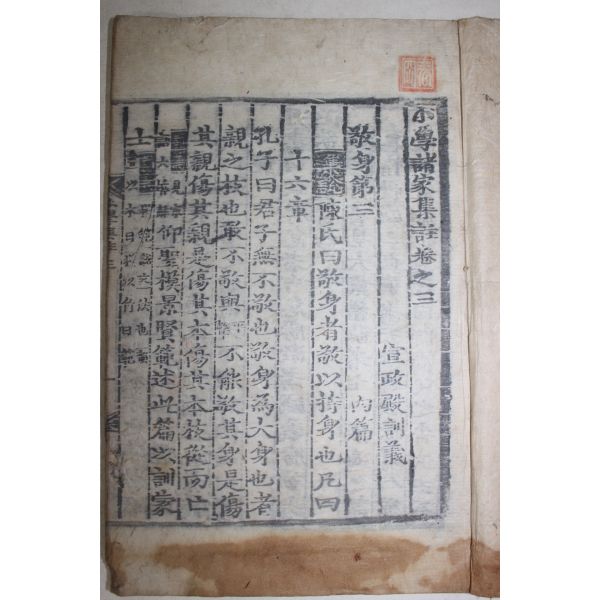 小學諸家集註卷之三
宣政殿訓義
敬身第三 內篇
集說陳氏曰敬身者敬以持身也凡四
十六章
孔子曰君子無不敬也敬身爲大身也者
親之枝也敢不敬與 不能敬其身是傷
其親傷其親是傷其本傷其本枝從而亡
仰聖模景賢範述此篇以訓蒙
士